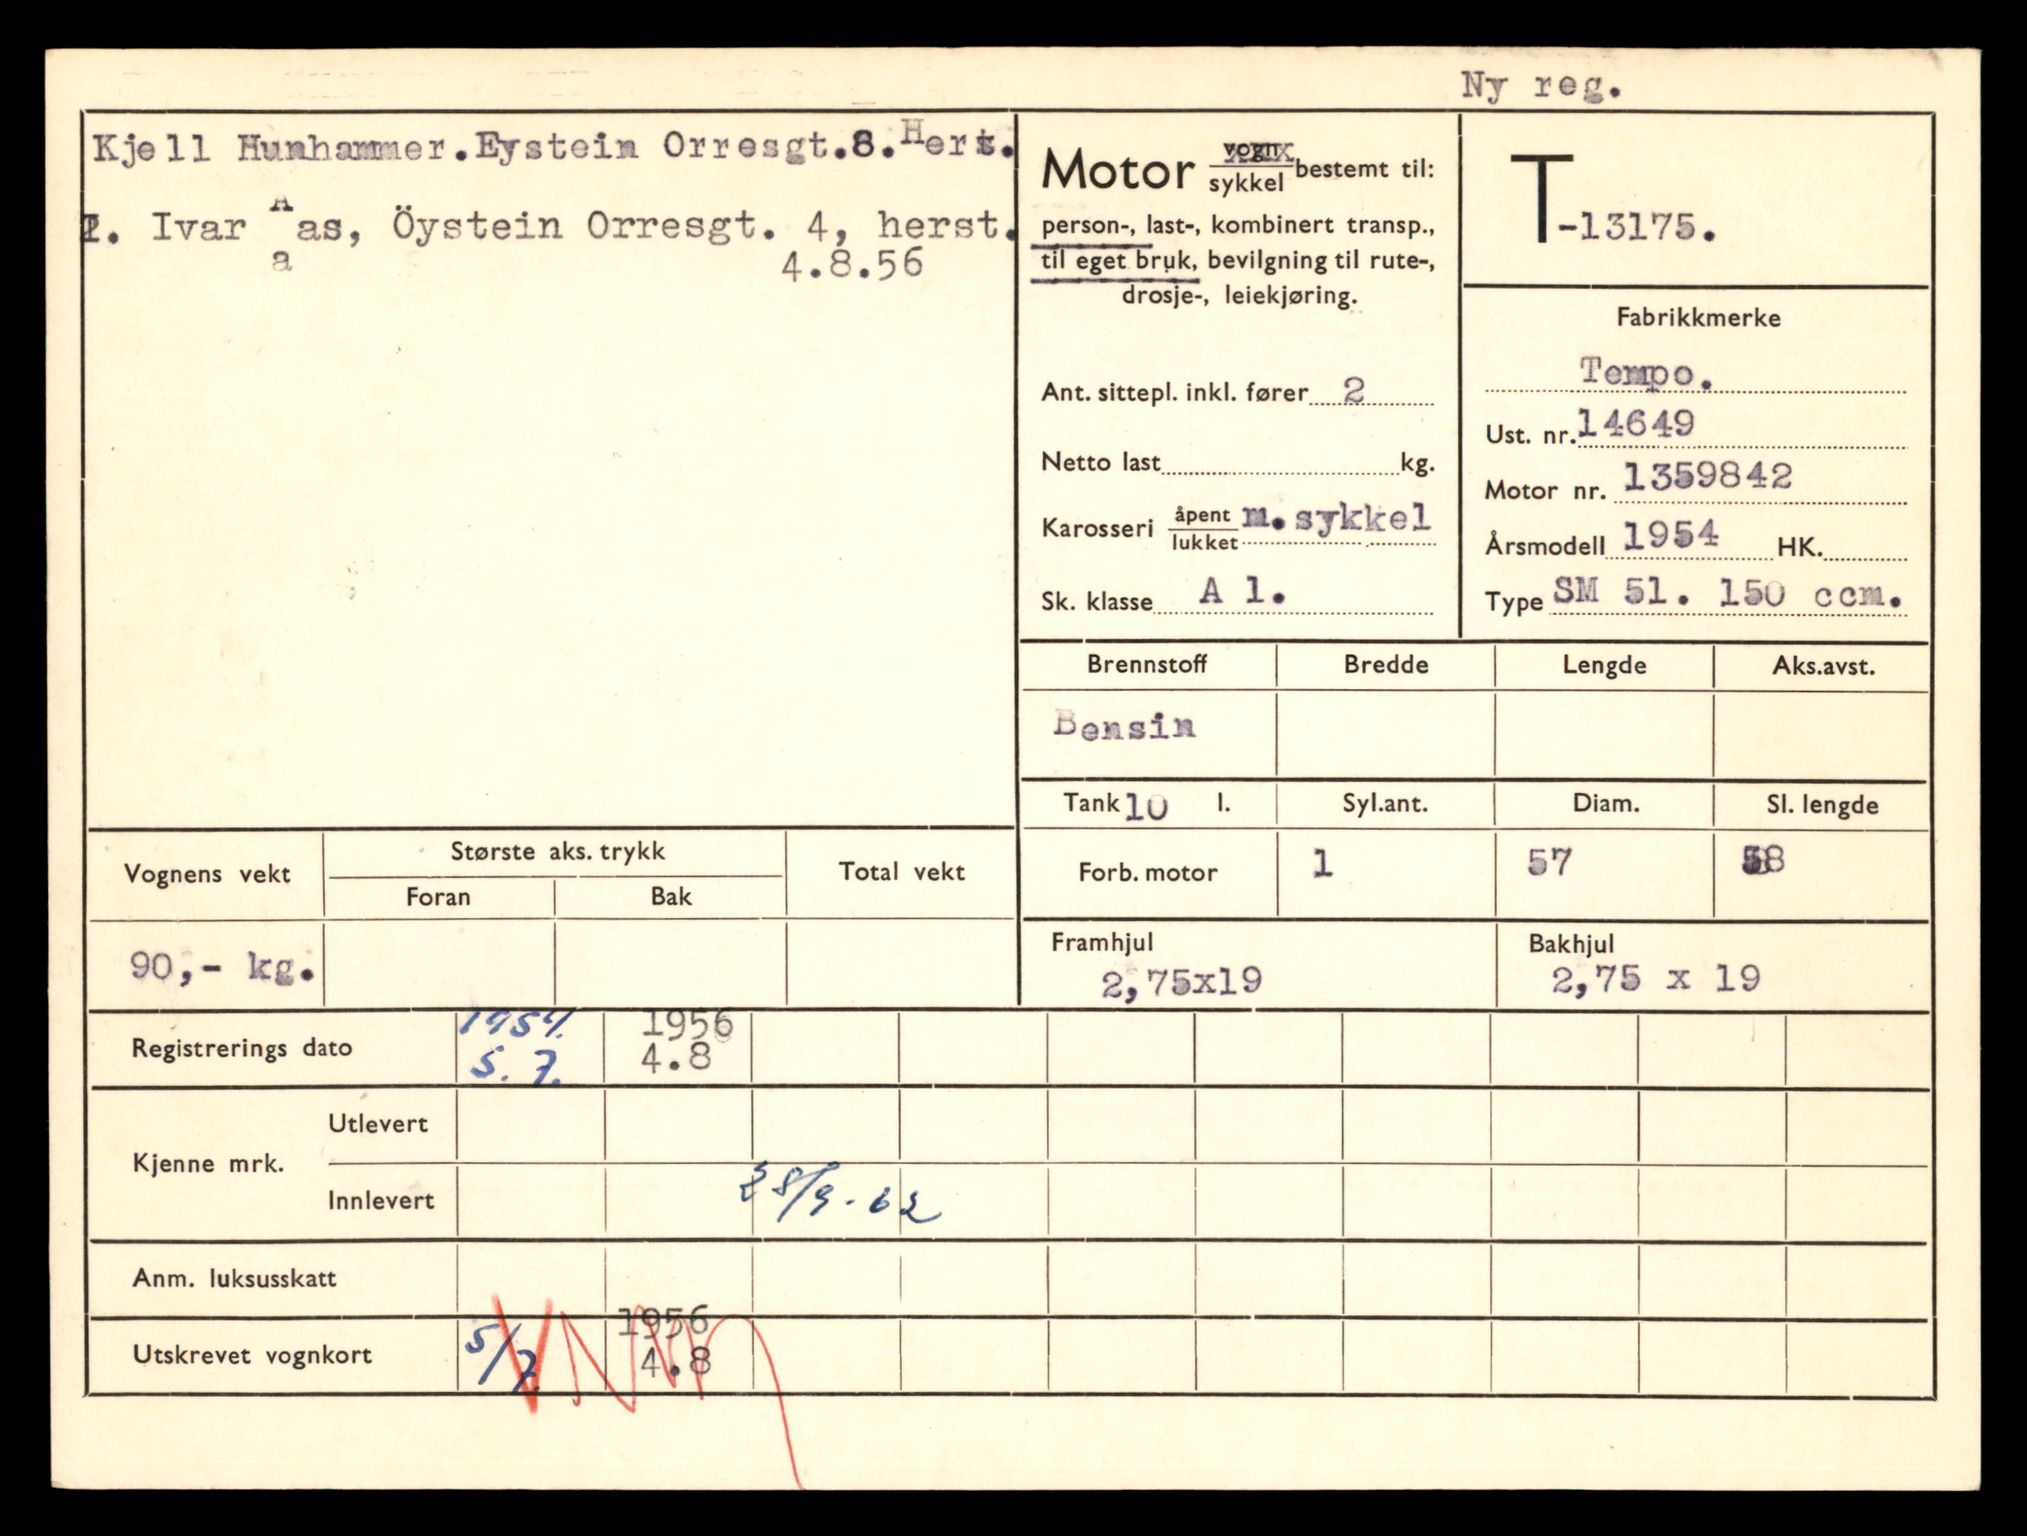 Ny reg.
Kjell Hunhammer.Eystein Orresgt.8.Hers.
2. Ivar Aas, Öystein Orresgt. 4, herst.
4.8.56
Motor vogn
sykkel bestemt til:
person-, last-, kombinert transp.,
til eget bruk, bevilgning til rute-,
drosje-, leiekjøring.
T-13175.
Fabrikkmerke
Tempo.
Ant. sittepl. inkl. fører 2
Ust. nr. 14649
Netto last kg.
Motor nr. 1359842
Karosseri åpent
lukket m.sykkel
Årsmodell 1954 HK.
Sk. klasse A 1.
Type SM 51. 150 ccm.
Brennstoff Bredde Lengde Aks.avst.
Bensin
Tank 10 l. Syl.ant. Diam. Sl. lengde
Forb. motor 1 57 58
Vognens vekt Største aks. trykk Total vekt
Foran Bak
90,- kg.
Framhjul Bakhjul
2,75x19 2,75 x 19
Registrerings dato 1954. 1956
5. 7. 4.8
Kjenne mrk. Utlevert
Innlevert 28/9-62
Anm. luksusskatt
Utskrevet vognkort 5/7 1956
4.8